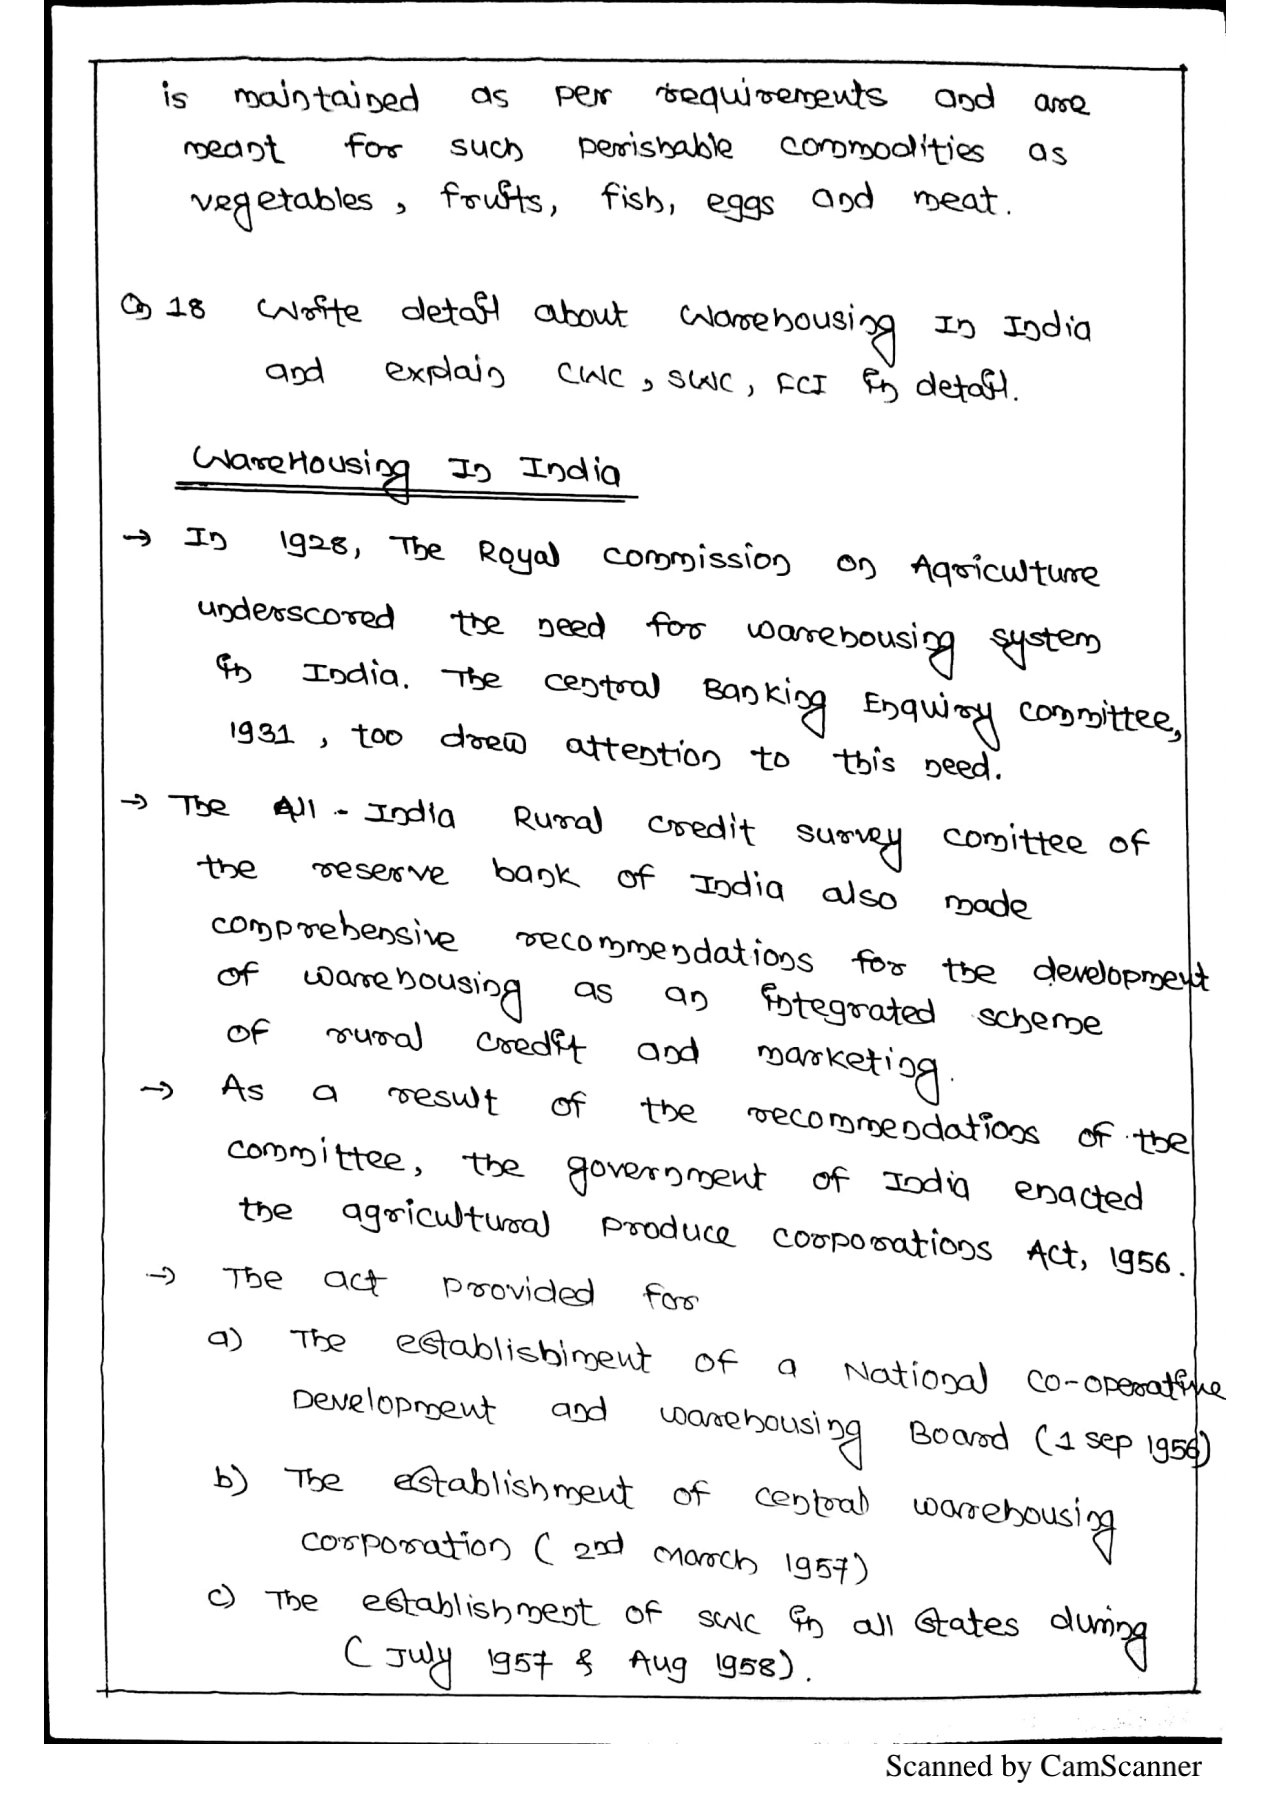 is maintained as per requirements and are
meant for such perishable commodities as
vegetables, fruits, fish, eggs and meat.
Q 18 Write detail about Warehousing In India
and explain CWC, SWC, FCI in detail.
WareHousing In India
→ In 1928, The Royal commission on Agriculture
underscored the need for warehousing system
in India. The central Banking Enquiry committee,
1931, too drew attention to this need.
→ The All-India Rural credit survey comittee of
the reserve bank of India also made
comprehensive recommendations for the development
of warehousing as an integrated scheme
of rural credit and marketing.
→ As a result of the recommendations of the
committee, the government of India enacted
the agricultural produce corporations Act, 1956.
→ The act provided for
a) The establishiment of a National co-operative
Development and warehousing Board (1 sep 1956)
b) The establishment of central warehousing
corporation (2nd march 1957)
c) The establishment of SWC in all states during
(July 1957 & Aug 1958).
Scanned by CamScanner